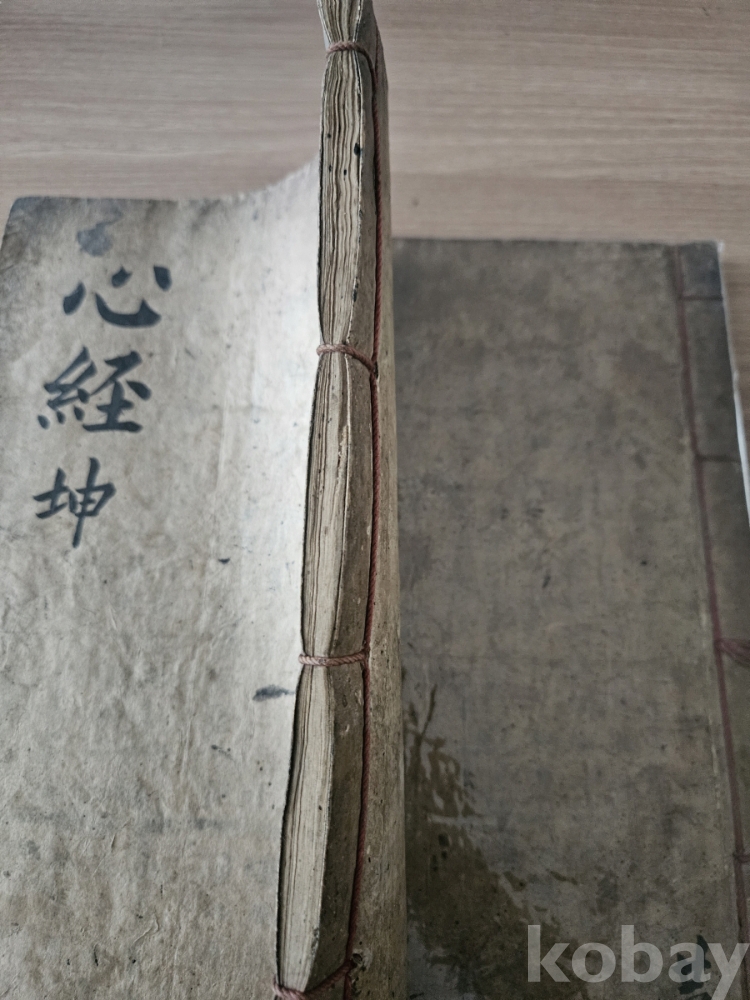 心
経
坤
kobay